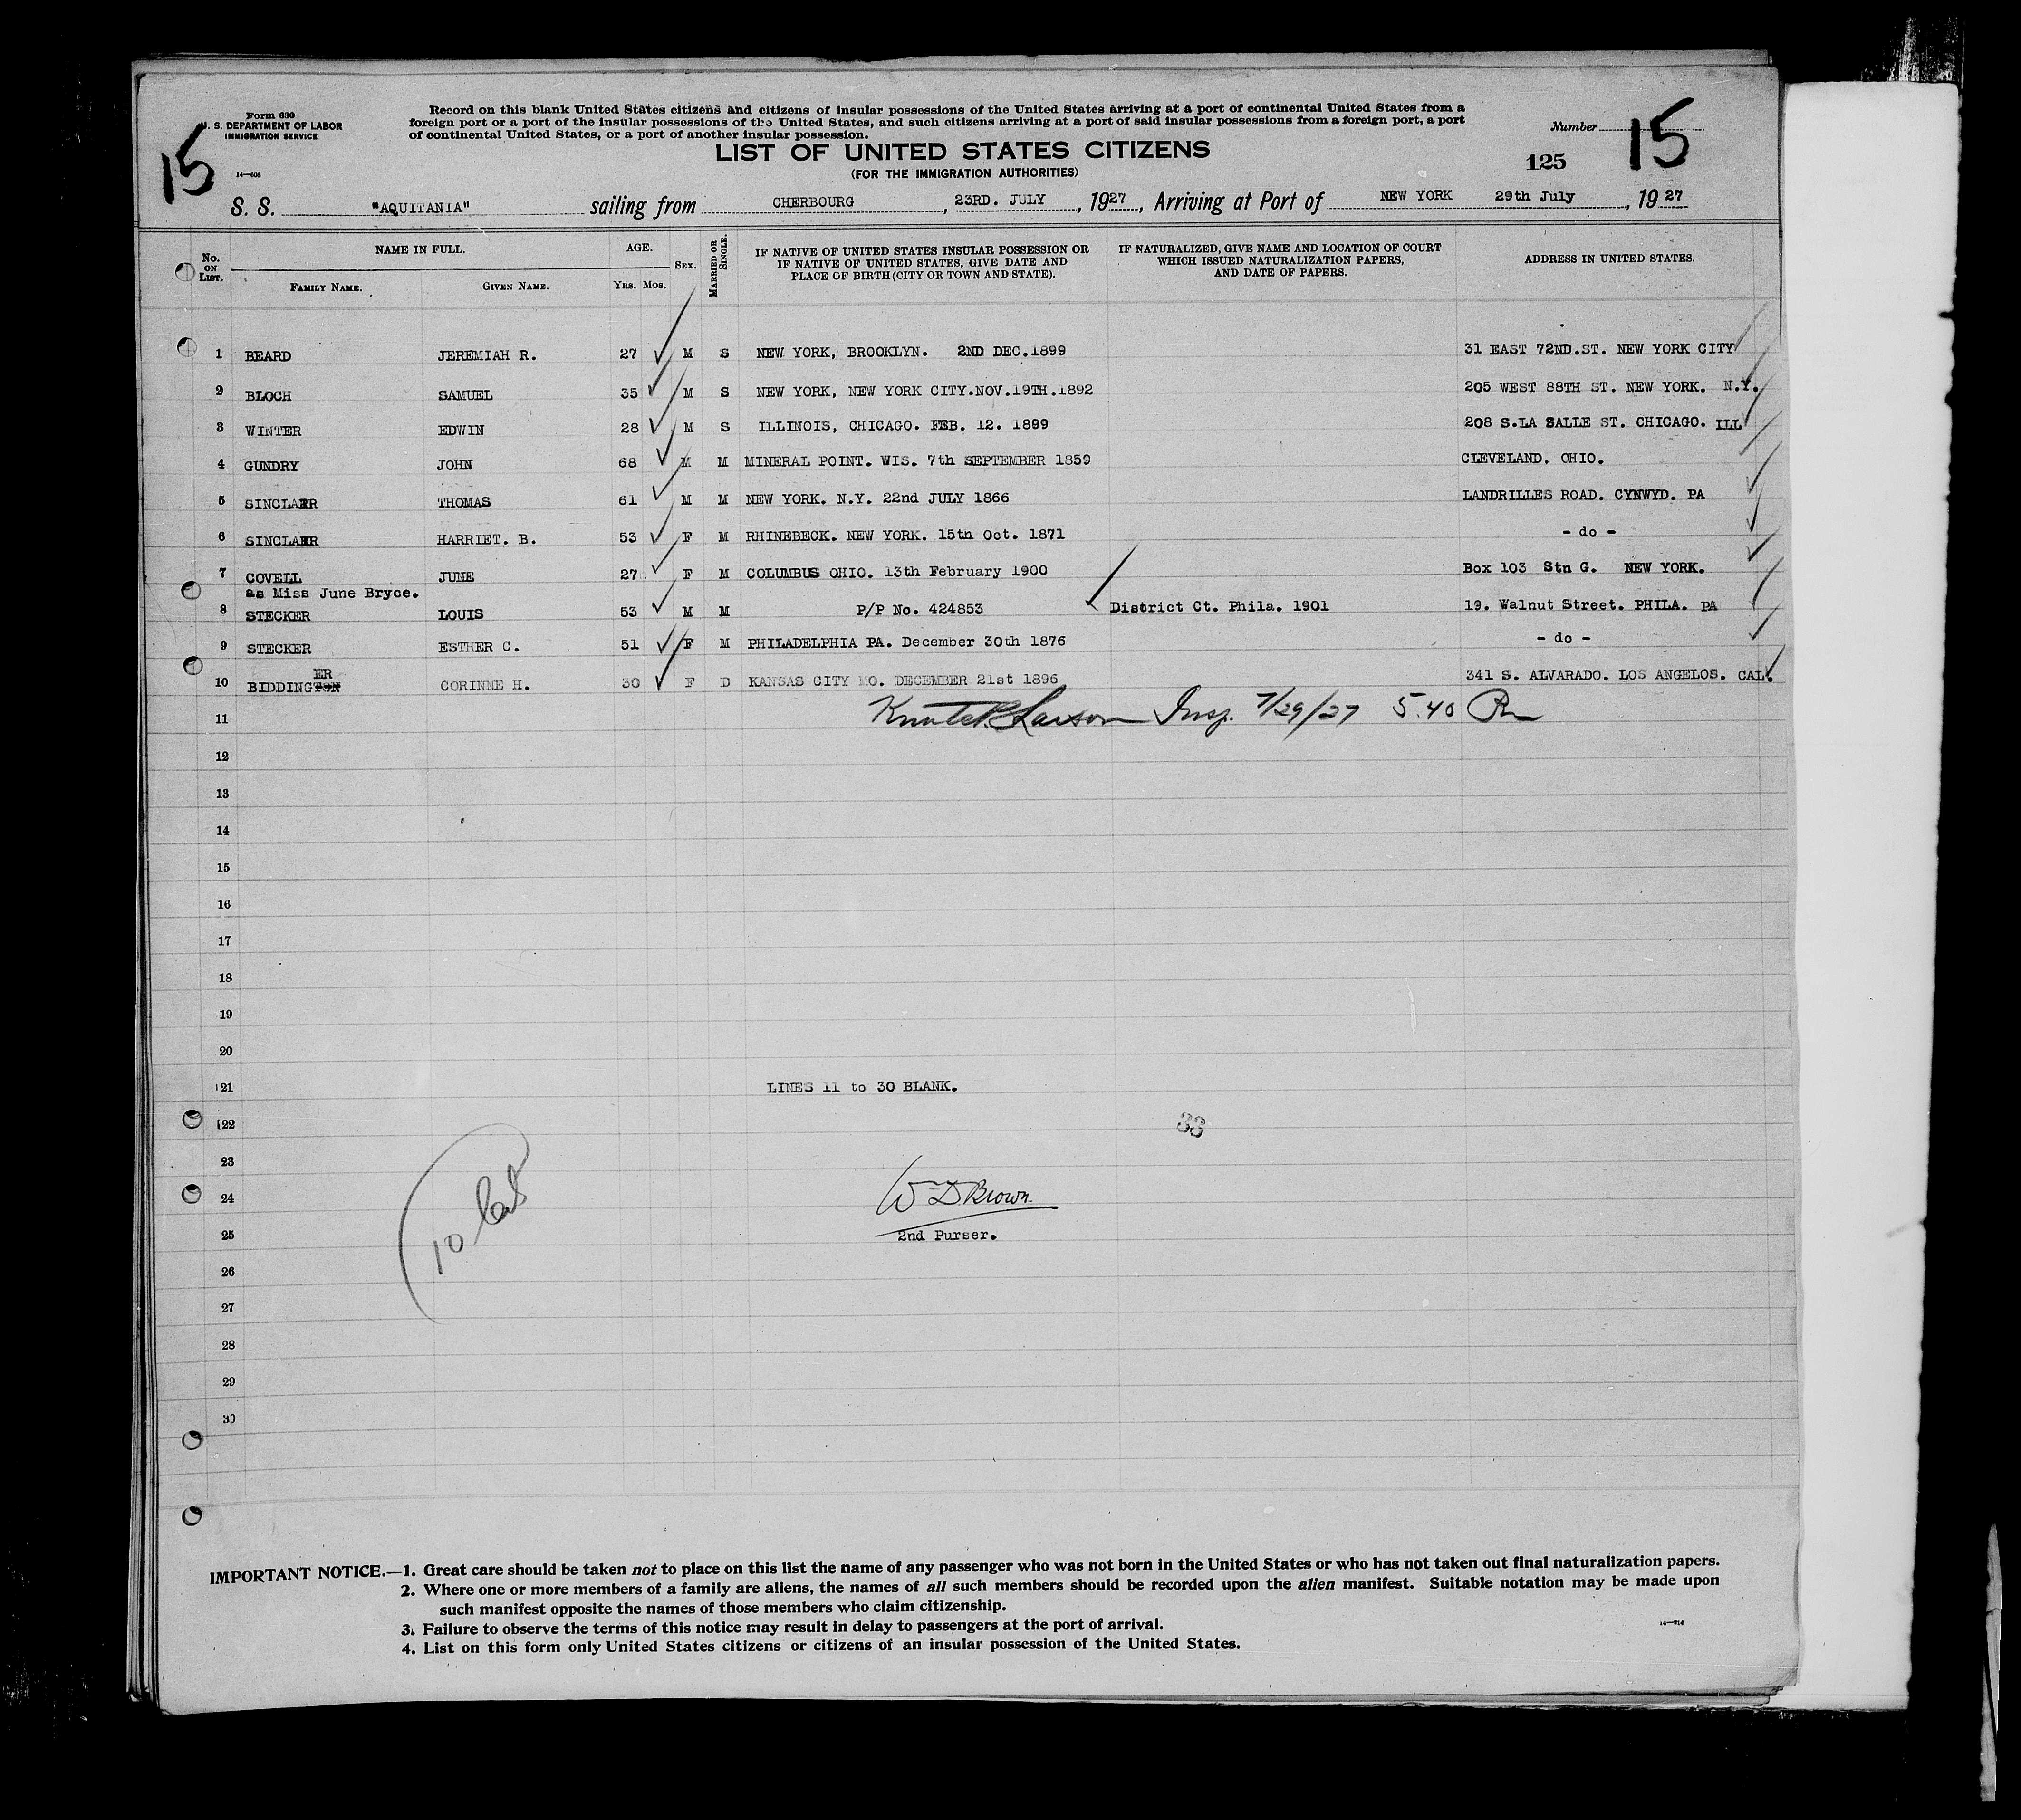 Form 630
U. S. DEPARTMENT OF LABOR
IMMIGRATION SERVICE
14—606
15
Record on this blank United States citizens and citizens of insular possessions of the United States arriving at a port of continental United States from a
foreign port or a port of the insular possessions of the United States, and such citizens arriving at a port of said insular possessions from a foreign port, a port
of continental United States, or a port of another insular possession.
Number 15
125
LIST OF UNITED STATES CITIZENS
(FOR THE IMMIGRATION AUTHORITIES)
S. S. "AQUITANIA" sailing from CHERBOURG, 23RD. JULY, 1927, Arriving at Port of NEW YORK 29th July, 19 27
No. ON LIST. NAME IN FULL. AGE. SEX. MARRIED OR SINGLE. IF NATIVE OF UNITED STATES INSULAR POSSESSION OR IF NATIVE OF UNITED STATES, GIVE DATE AND PLACE OF BIRTH (CITY OR TOWN AND STATE). IF NATURALIZED, GIVE NAME AND LOCATION OF COURT WHICH ISSUED NATURALIZATION PAPERS, AND DATE OF PAPERS. ADDRESS IN UNITED STATES.
FAMILY NAME. GIVEN NAME. YRS. MOS.
1 BEARD JEREMIAH R. 27 M S NEW YORK, BROOKLYN. 2ND DEC.1899 31 EAST 72ND.ST. NEW YORK CITY
2 BLOCH SAMUEL 35 M S NEW YORK, NEW YORK CITY.NOV.19TH.1892 205 WEST 88TH ST. NEW YORK. N.Y.
3 WINTER EDWIN 28 M S ILLINOIS, CHICAGO. FEB. 12. 1899 208 S.LA SALLE ST. CHICAGO. ILL
4 GUNDRY JOHN 68 M M MINERAL POINT. WIS. 7th SEPTEMBER 1859 CLEVELAND. OHIO.
5 SINCLAIR THOMAS 61 M M NEW YORK. N.Y. 22nd JULY 1866 LANDRILLES ROAD. CYNWYD. PA
6 SINCLAIR HARRIET. B. 53 F M RHINEBECK. NEW YORK. 15th Oct. 1871 - do -
7 COVELL JUNE 27 F M COLUMBUS OHIO. 13th February 1900 Box 103 Stn G. NEW YORK.
as Miss June Bryce.
8 STECKER LOUIS 53 M M P/P No. 424853 District Ct. Phila. 1901 19. Walnut Street. PHILA. PA
9 STECKER ESTHER C. 51 F M PHILADELPHIA PA. December 30th 1876 - do -
ER
10 BIDDINGTON CORINNE H. 30 F D KANSAS CITY MO. DECEMBER 21st 1896 341 S. ALVARADO. LOS ANGELOS. CAL.
11 Knute P. Larson Insp. 7/29/27 5.40 Pm
12
13
14
15
16
17
18
19
20
21 LINES 11 to 30 BLANK.
22 33
23
24 W D Brown
25 2nd Purser.
10
26
27
28
29
30
IMPORTANT NOTICE.—1. Great care should be taken not to place on this list the name of any passenger who was not born in the United States or who has not taken out final naturalization papers.
2. Where one or more members of a family are aliens, the names of all such members should be recorded upon the alien manifest. Suitable notation may be made upon
such manifest opposite the names of those members who claim citizenship.
3. Failure to observe the terms of this notice may result in delay to passengers at the port of arrival.
4. List on this form only United States citizens or citizens of an insular possession of the United States.